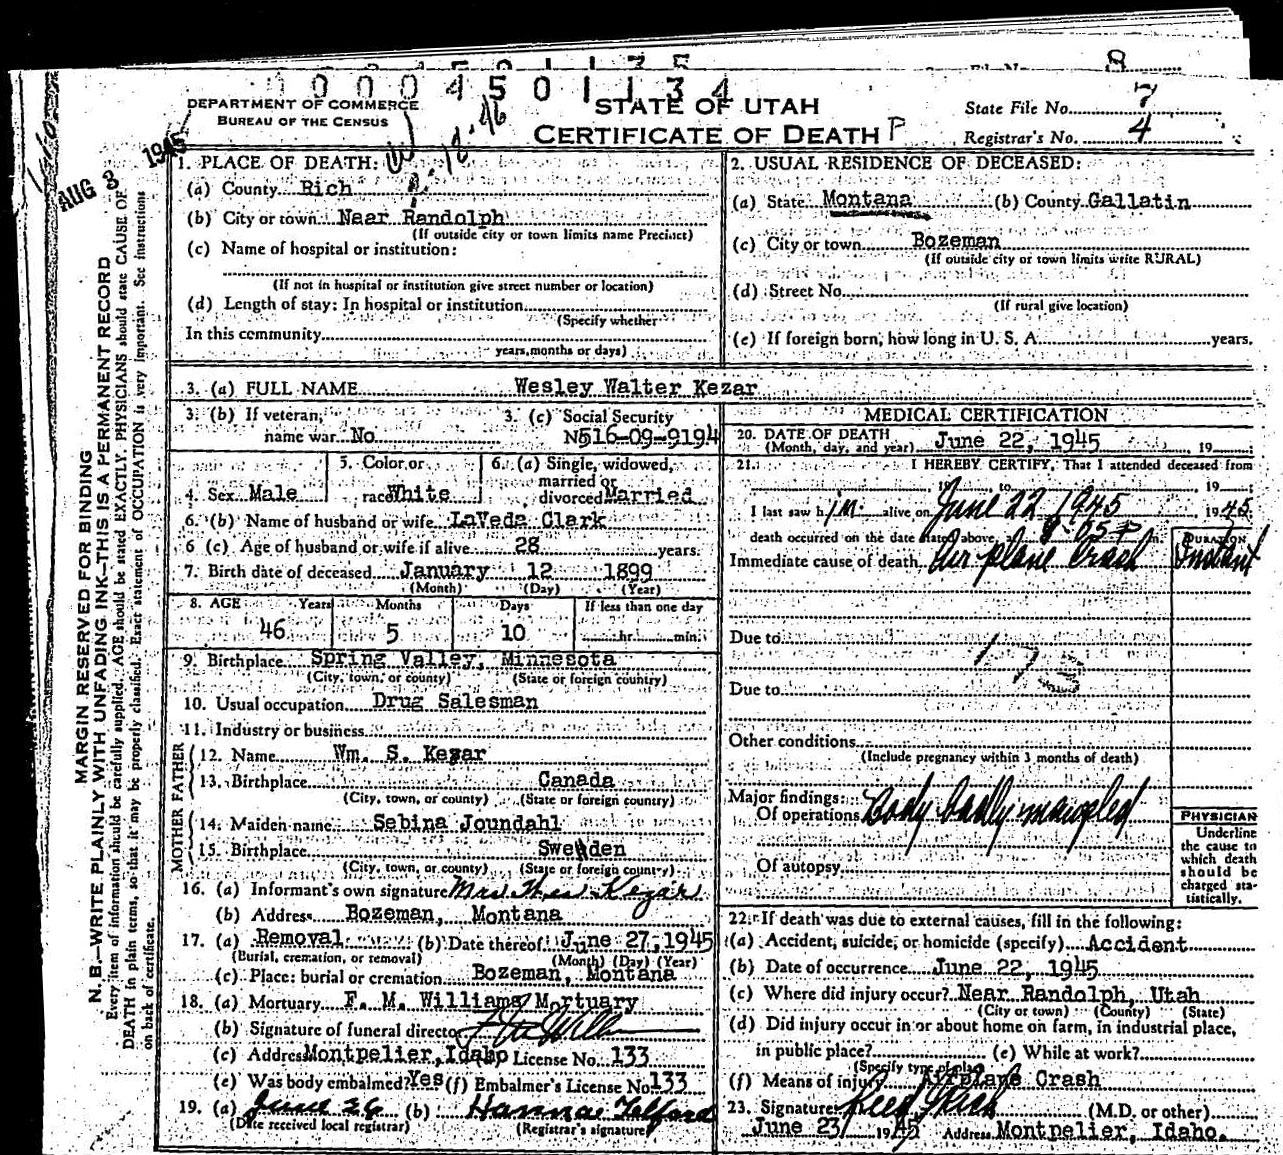 8
0 0 0 4 5 0 1 1 3 4
DEPARTMENT OF COMMERCE
BUREAU OF THE CENSUS
STATE OF UTAH
CERTIFICATE OF DEATH
State File No. 7
Registrar's No. 4
AUG 3 1945
MARGIN RESERVED FOR BINDING
N. B.—WRITE PLAINLY WITH UNFADING INK—THIS IS A PERMANENT RECORD
Every item of information should be carefully supplied. AGE should be stated EXACTLY. PHYSICIANS should state CAUSE OF
DEATH in plain terms, so that it may be properly classified. Exact statement of OCCUPATION is very important. See instructions
on back of certificate.
1. PLACE OF DEATH:
(a) County Rich
(b) City or town Near Randolph
(If outside city or town limits name Precinct)
(c) Name of hospital or institution:
(If not in hospital or institution give street number or location)
(d) Length of stay: In hospital or institution
(Specify whether
In this community
years, months or days)
2. USUAL RESIDENCE OF DECEASED:
(a) State Montana (b) County Gallatin
(c) City or town Bozeman
(If outside city or town limits write RURAL)
(d) Street No.
(If rural give location)
(e) If foreign born, how long in U. S. A. years.
3. (a) FULL NAME Wesley Walter Kezar
3. (b) If veteran, name war No
3. (c) Social Security
No 516-09-9194
4. Sex Male
5. Color or race White
6. (a) Single, widowed, married or divorced Married
6. (b) Name of husband or wife LaVeda Clark
6 (c) Age of husband or wife if alive 28 years.
7. Birth date of deceased January 12 1899
(Month) (Day) (Year)
8. AGE Years Months Days If less than one day
46 5 10 hr. min.
9. Birthplace Spring Valley, Minnesota
(City, town, or county) (State or foreign country)
10. Usual occupation Drug Salesman
11. Industry or business
FATHER
12. Name Wm. S. Kezar
13. Birthplace Canada
(City, town, or county) (State or foreign country)
MOTHER
14. Maiden name Sebina Joundahl
15. Birthplace Sweden
(City, town, or county) (State or foreign country)
16. (a) Informant's own signature Kezar
(b) Address Bozeman, Montana
17. (a) Removal (b) Date thereof June 27, 1945
(Burial, cremation, or removal) (Month) (Day) (Year)
(c) Place: burial or cremation Bozeman, Montana
18. (a) Mortuary F. M. Williams Mortuary
(b) Signature of funeral director
(c) Address Montpelier, Idaho License No. 133
(e) Was body embalmed? Yes (f) Embalmer's License No 133
19. (a) June 26 (b) Hanna Telford
(Date received local registrar) (Registrar's signature)
MEDICAL CERTIFICATION
20. DATE OF DEATH June 22, 1945 19
(Month, day, and year)
21. I HEREBY CERTIFY, That I attended deceased from
19 to 19
I last saw him alive on June 22 1945 1945
death occurred on the date stated above, 8:05 P m.
Immediate cause of death Air plane Crash
DURATION
Instant
Due to
Due to
173
Other conditions
(Include pregnancy within 3 months of death)
Major findings:
Of operations Body badly mangled
Of autopsy
PHYSICIAN
Underline
the cause to
which death
should be
charged sta-
tistically.
22. If death was due to external causes, fill in the following:
(a) Accident, suicide, or homicide (specify) Accident
(b) Date of occurrence June 22, 1945
(c) Where did injury occur? Near Randolph, Utah
(City or town) (County) (State)
(d) Did injury occur in or about home on farm, in industrial place,
in public place? (e) While at work?
(Specify type of place)
(f) Means of injury Airplane Crash
23. Signature Reed Rich (M.D. or other)
June 23 1945 Address Montpelier, Idaho.